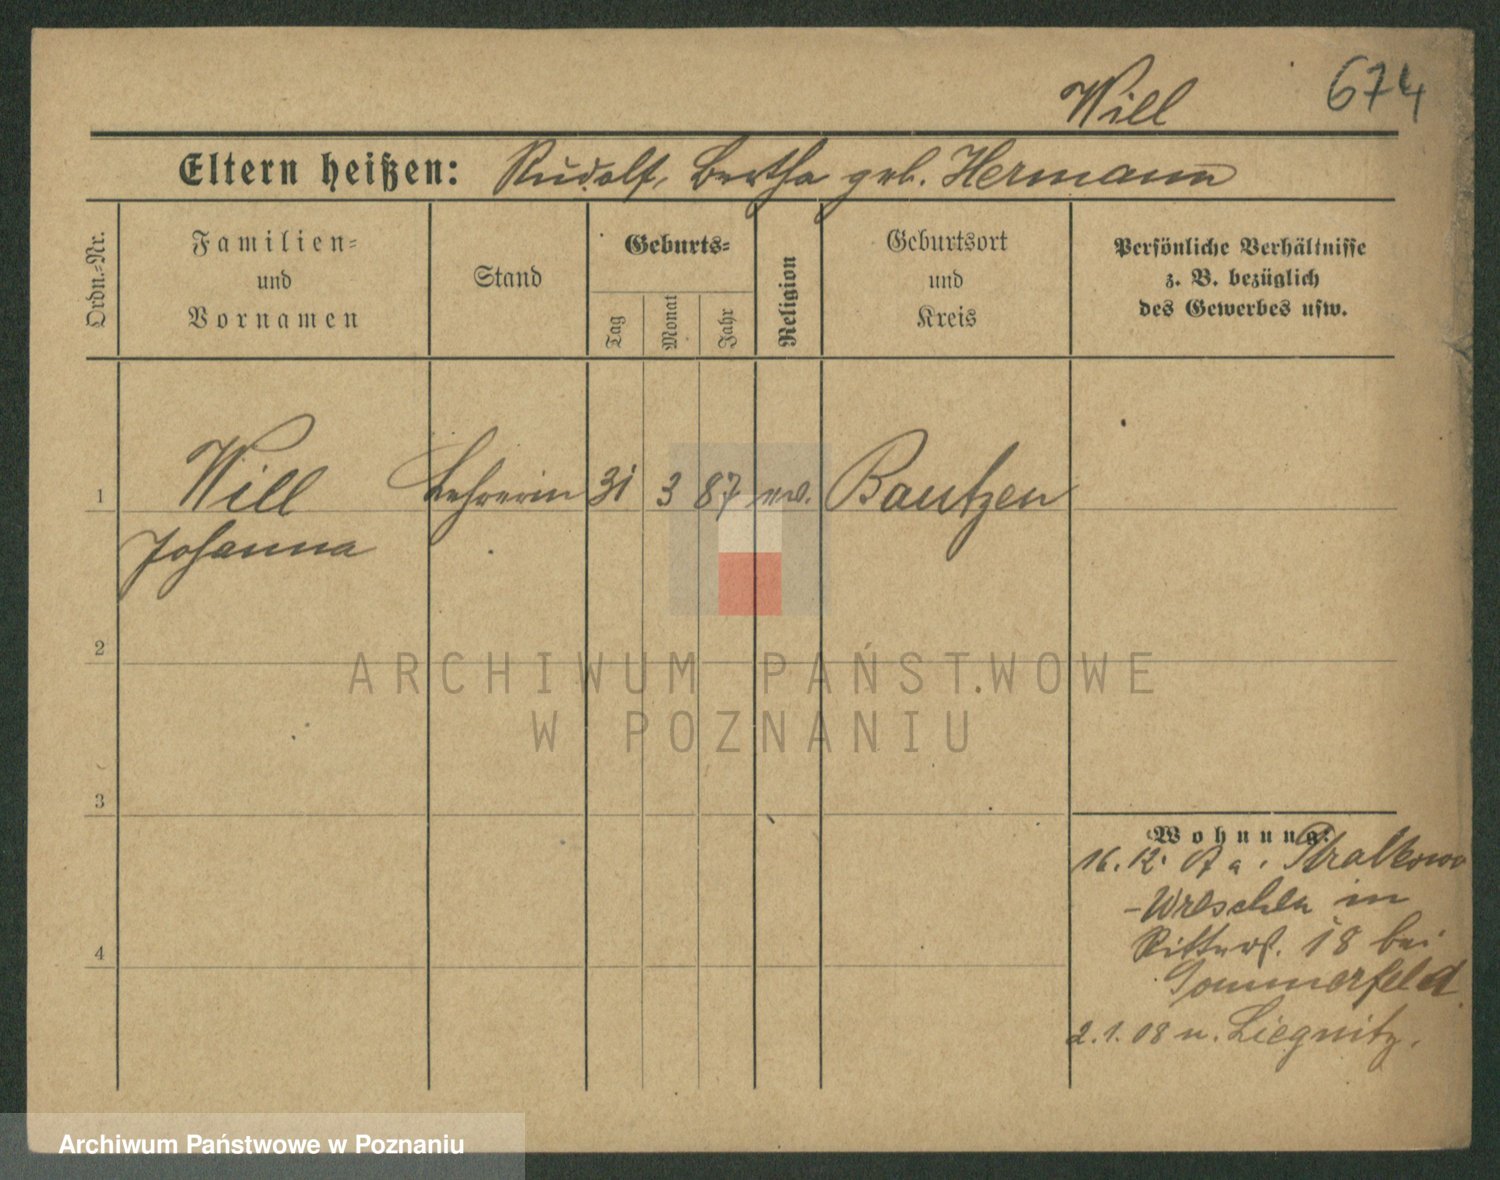 Will
674
Eltern heißen: Rudolf, Bertha geb. Hermann
Ordn.=Nr.
Familien=
und
Vornamen
Stand
Geburts=
Tag
Monat
Jahr
Religion
Geburtsort
und
Kreis
Persönliche Verhältnisse
z. B. bezüglich
des Gewerbes usw.
1
Will
Johanna
Lehrerin
31
3
87
ev.
Bautzen
2
3
4
Wohnung:
16. 12. 07 a. Stralkowo
-Wreschen in
Ritterst. 18 bei
Sommerfeld
2. 1. 08 n. Liegnitz.
ARCHIWUM PAŃSTWOWE
W POZNANIU
Archiwum Państwowe w Poznaniu